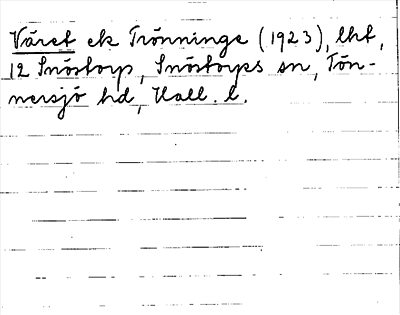 Våret ek Trönninge (1923), lht,
12 Snöstorp, Snöstorps sn, Tön-
nersjö hd, Hall. l.